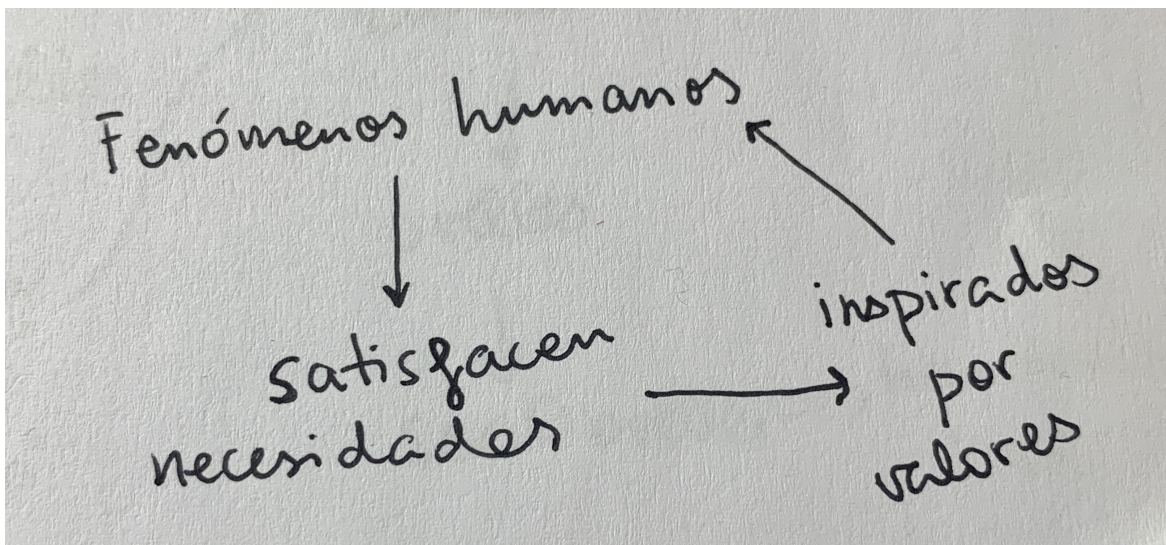 Fenómenos humanos
satisfacen
necesidades
inspirados
por
valores